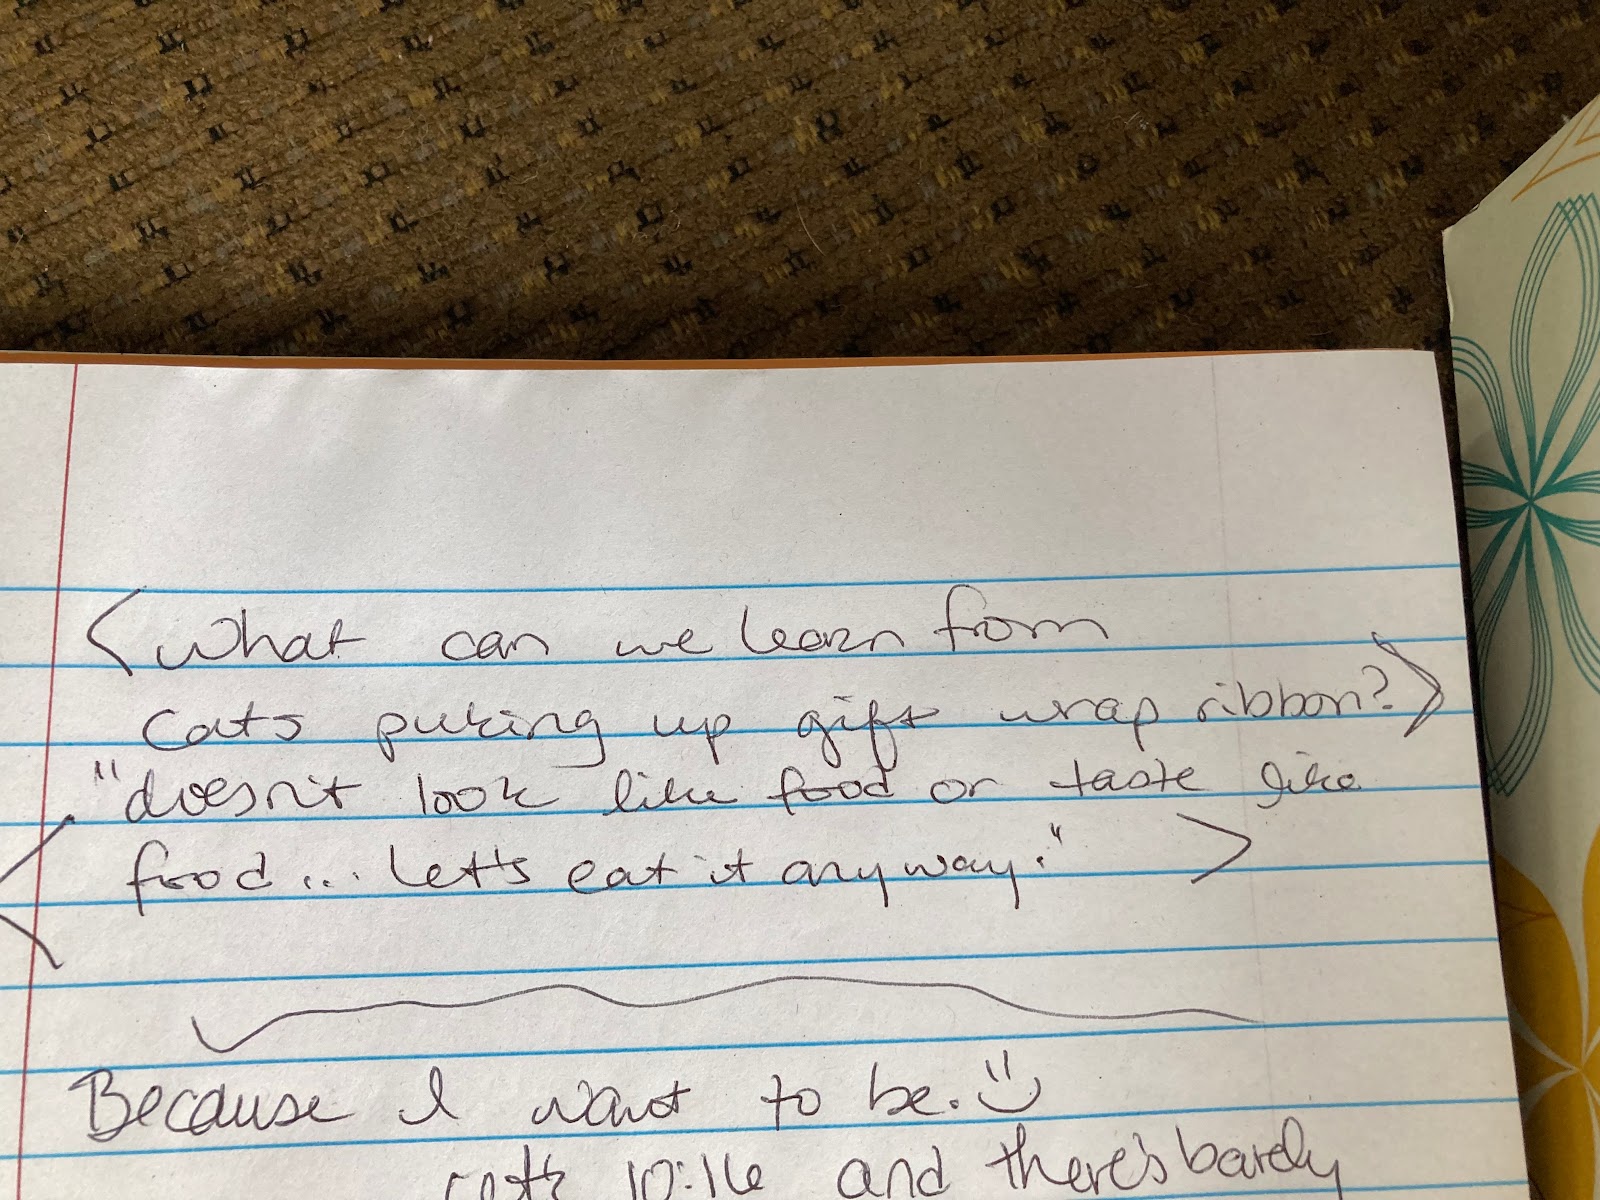 <What can we learn from
cats puking up gift wrap ribbon?>
"doesn't look like food or taste like
<food... let's eat it anyway." >
Because I want to be. :)
10:16 and there's barely